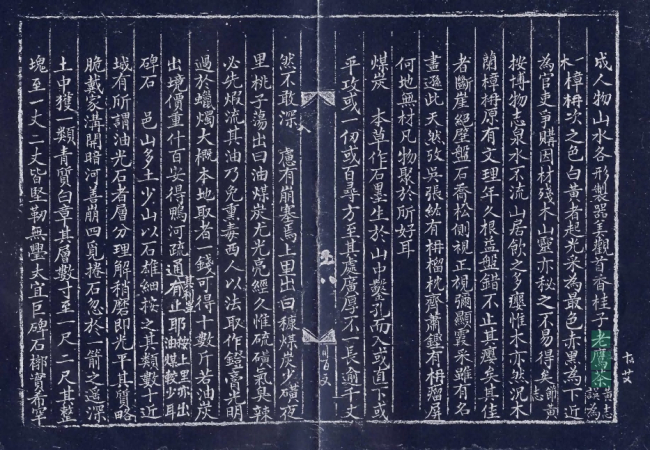 成人物山水各形製器美觀首香桂子老鷹茶黃志誤為
木一樟枬次之色白黃者起光采為最色赤黑為下近
為官吏爭購因材殘木山靈亦秘之不易得矣節黃志
按博物志泉水不流山居飲之多癭惟木亦然沉木
蘭樟枬原有文理年久根益盤錯不止其癭矣其佳
者斷崖絕壁盤石喬松側視正視彌顯雲采雖有名
畫遜此天然攷吳張紘有枬榴枕齊蕭鏗有枬瘤屏
何地無材凡物聚於所好耳
煤炭 本草作石墨生於山中鑿孔而入或直下或
平攻或一仞或百尋方至其處廣厚不一長逾千丈
然不敢深入慮有崩塞焉上里出曰糠煤炭少磺夜
里桃子蕩出曰油煤炭尤光亮經久惟硫磺氣臭辣
必先煆流其油乃免重毒西人以法取作鐙膏光明
過於蠟燭大概本地取者一錢可得十數斤若油炭
出境價重什百安得鴨河疏通其利豈有止耶按上里亦出油煤較少耳
碑石 邑山多土少山以石雄細按之其類數十近
城有所謂油光石者層分理解稍磨即光平其質略
脆戴家溝開暗河善崩四覓擦石忽於一箭之遙深
土中獲一類青質白章其層數寸至一尺二尺其整
塊至一丈二丈皆堅韌無璺大宜巨碑石槨寶希罕